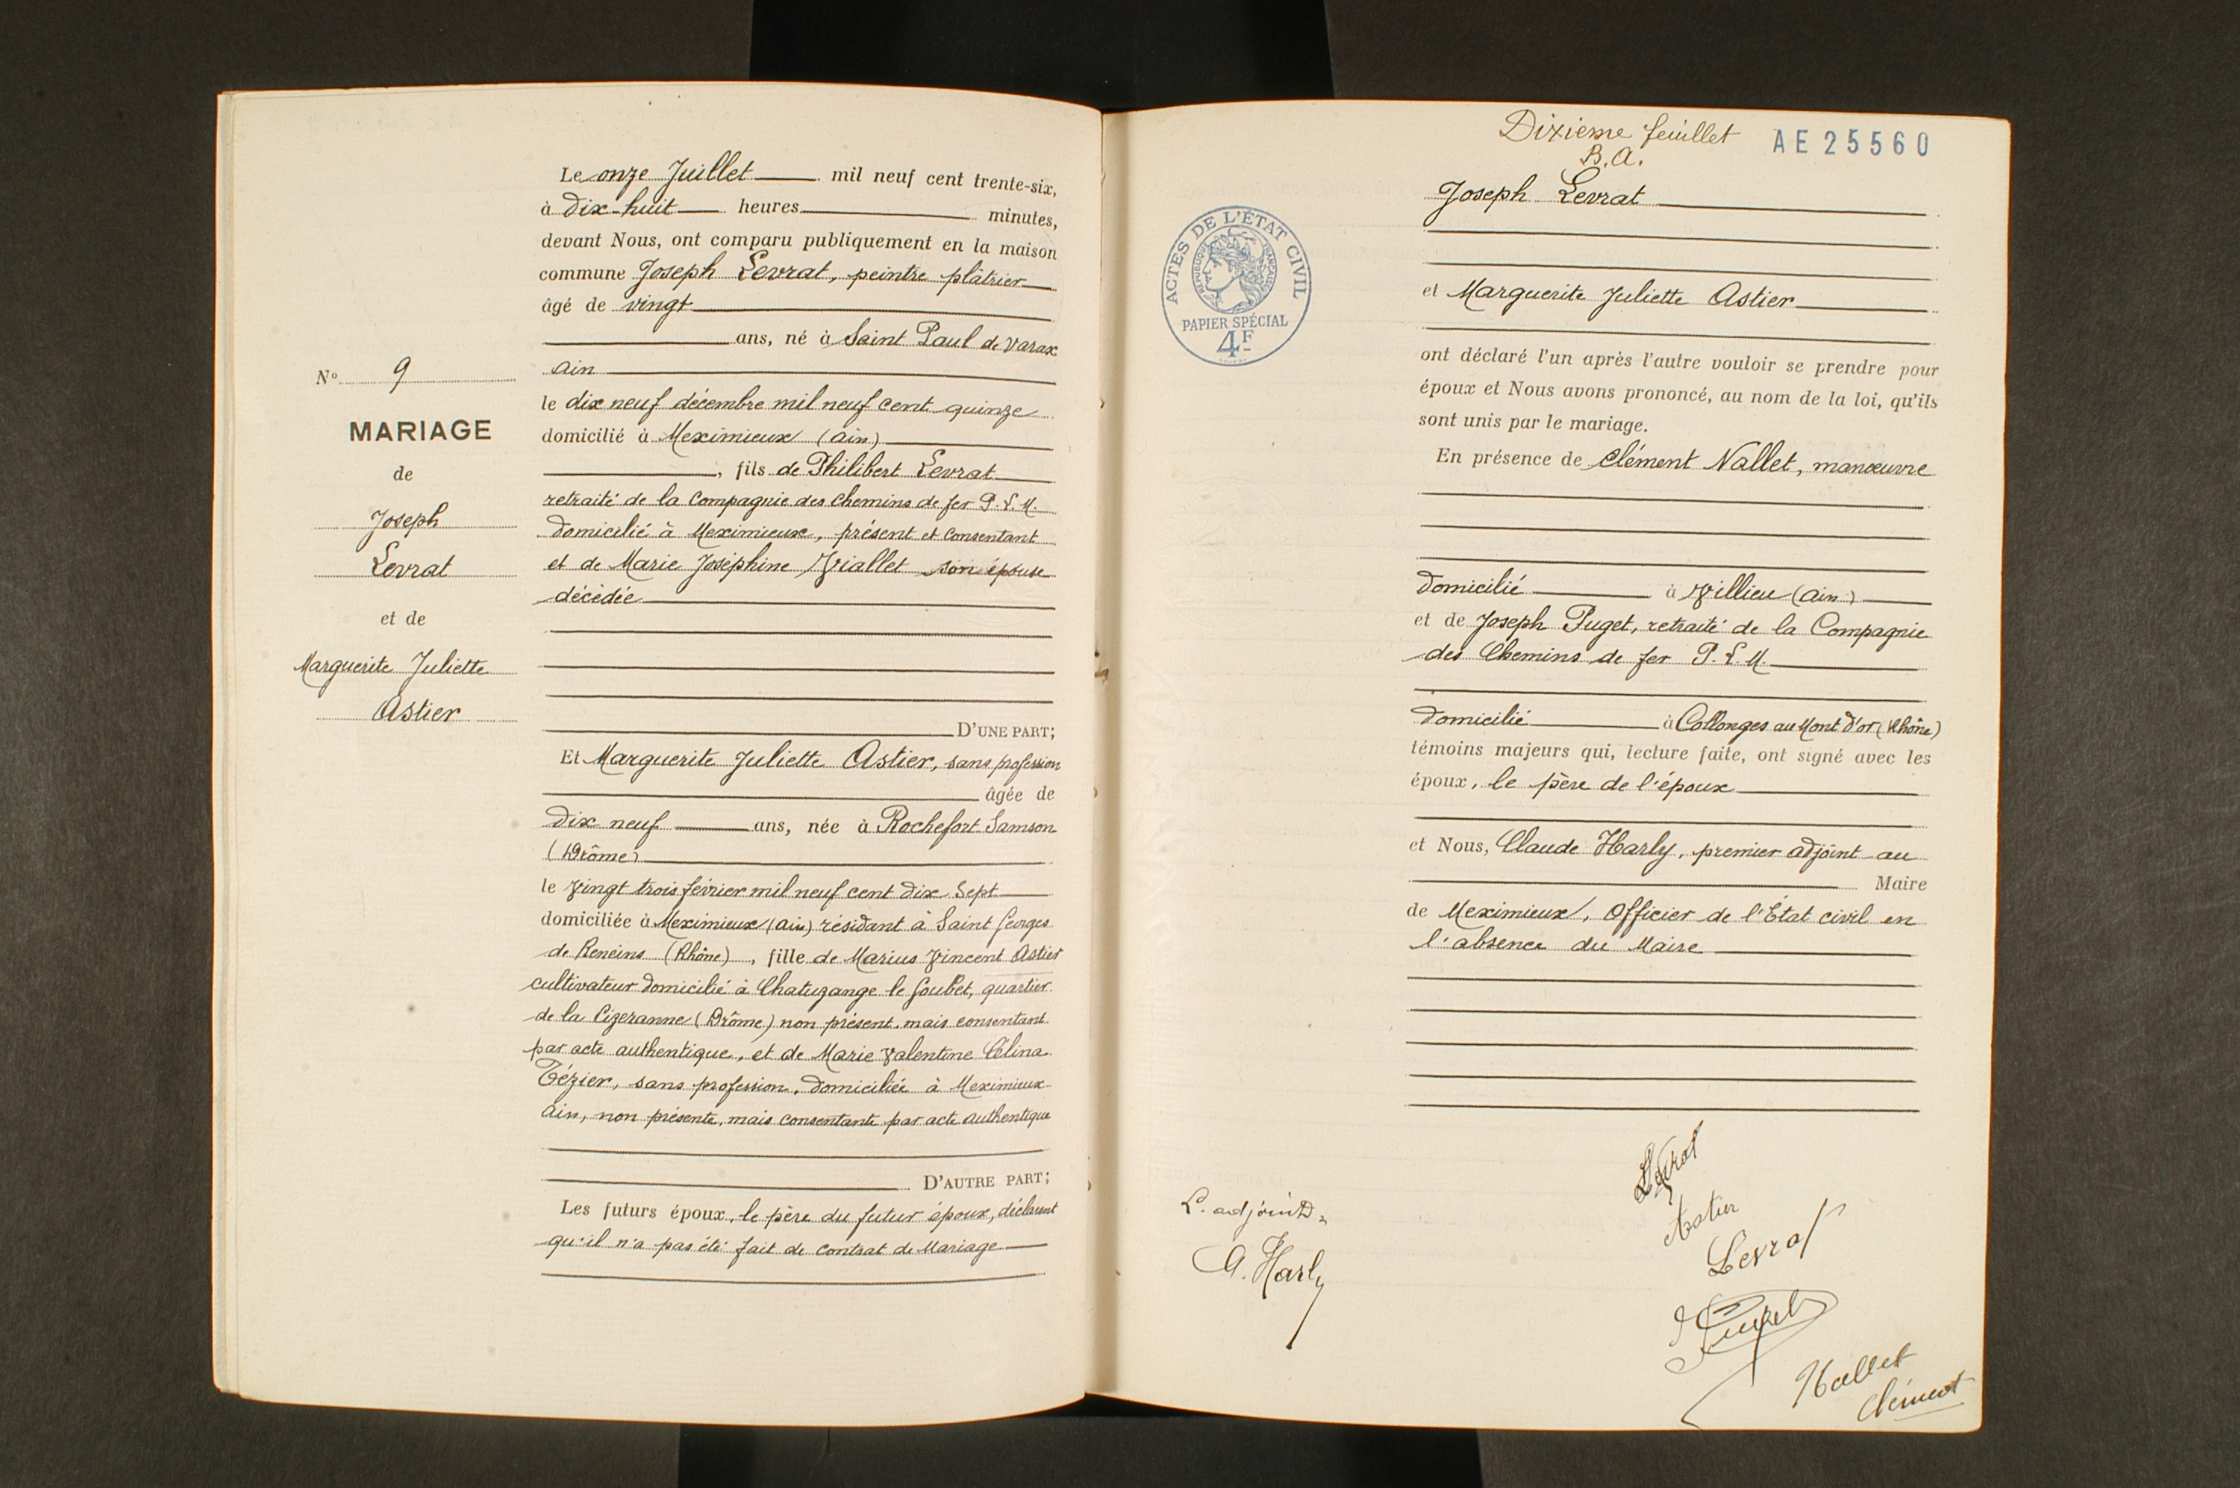 N° 9
MARIAGE
de
Joseph
Levrat
et de
Marguerite Juliette
Astier
Le onze Juillet mil neuf cent trente-six,
à dix-huit heures minutes,
devant Nous, ont comparu publiquement en la maison
commune Joseph Levrat, peintre plâtrier
âgé de vingt
ans, né à Saint Paul de Varax
ain
le dix neuf décembre mil neuf cent quinze
domicilié à Meximieux (ain)
, fils de Philibert Levrat
retraité de la Compagnie des chemins de fer P.L.M.
domicilié à Meximieux, présent et consentant
et de Marie Joséphine Viallet son épouse
décédée
D'UNE PART;
Et Marguerite Juliette Astier, sans profession
âgée de
dix neuf ans, née à Rochefort Samson
(Drôme)
le vingt trois février mil neuf cent dix sept
domiciliée à Meximieux (ain) résidant à Saint Georges
de Reneins (Rhône), fille de Marius Vincent Astier
cultivateur domicilié à Chatuzange le Goubet, quartier
de la Cizeranne (Drôme) non présent, mais consentant
par acte authentique, et de Marie Valentine Célina
Tézier, sans profession, domiciliée à Meximieux
ain, non présente, mais consentante par acte authentique
D'AUTRE PART;
Les futurs époux, le père du futur époux, déclarent
qu'il n'a pas été fait de contrat de Mariage
Dixieme feuillet AE 25560
B.A.
ACTES DE L'ÉTAT CIVIL
RÉPUBLIQUE FRANÇAISE
PAPIER SPÉCIAL
4F
Joseph Levrat
et Marguerite Juliette Astier
ont déclaré l'un après l'autre vouloir se prendre pour
époux et Nous avons prononcé, au nom de la loi, qu'ils
sont unis par le mariage.
En présence de Clément Nallet, manœuvre
domicilié à Villieu (ain)
et de Joseph Puget, retraité de la Compagnie
des Chemins de fer P.L.M.
domicilié à Collonges au Mont d'or (Rhône)
témoins majeurs qui, lecture faite, ont signé avec les
époux, le père de l'époux
et Nous, Claude Harly, premier adjoint au
Maire
de Meximieux, Officier de l'État civil en
l'absence du Maire
Levrat
Astier
Levrat
L. adjoint
C. Harly
J Puget
Nallet
Clément